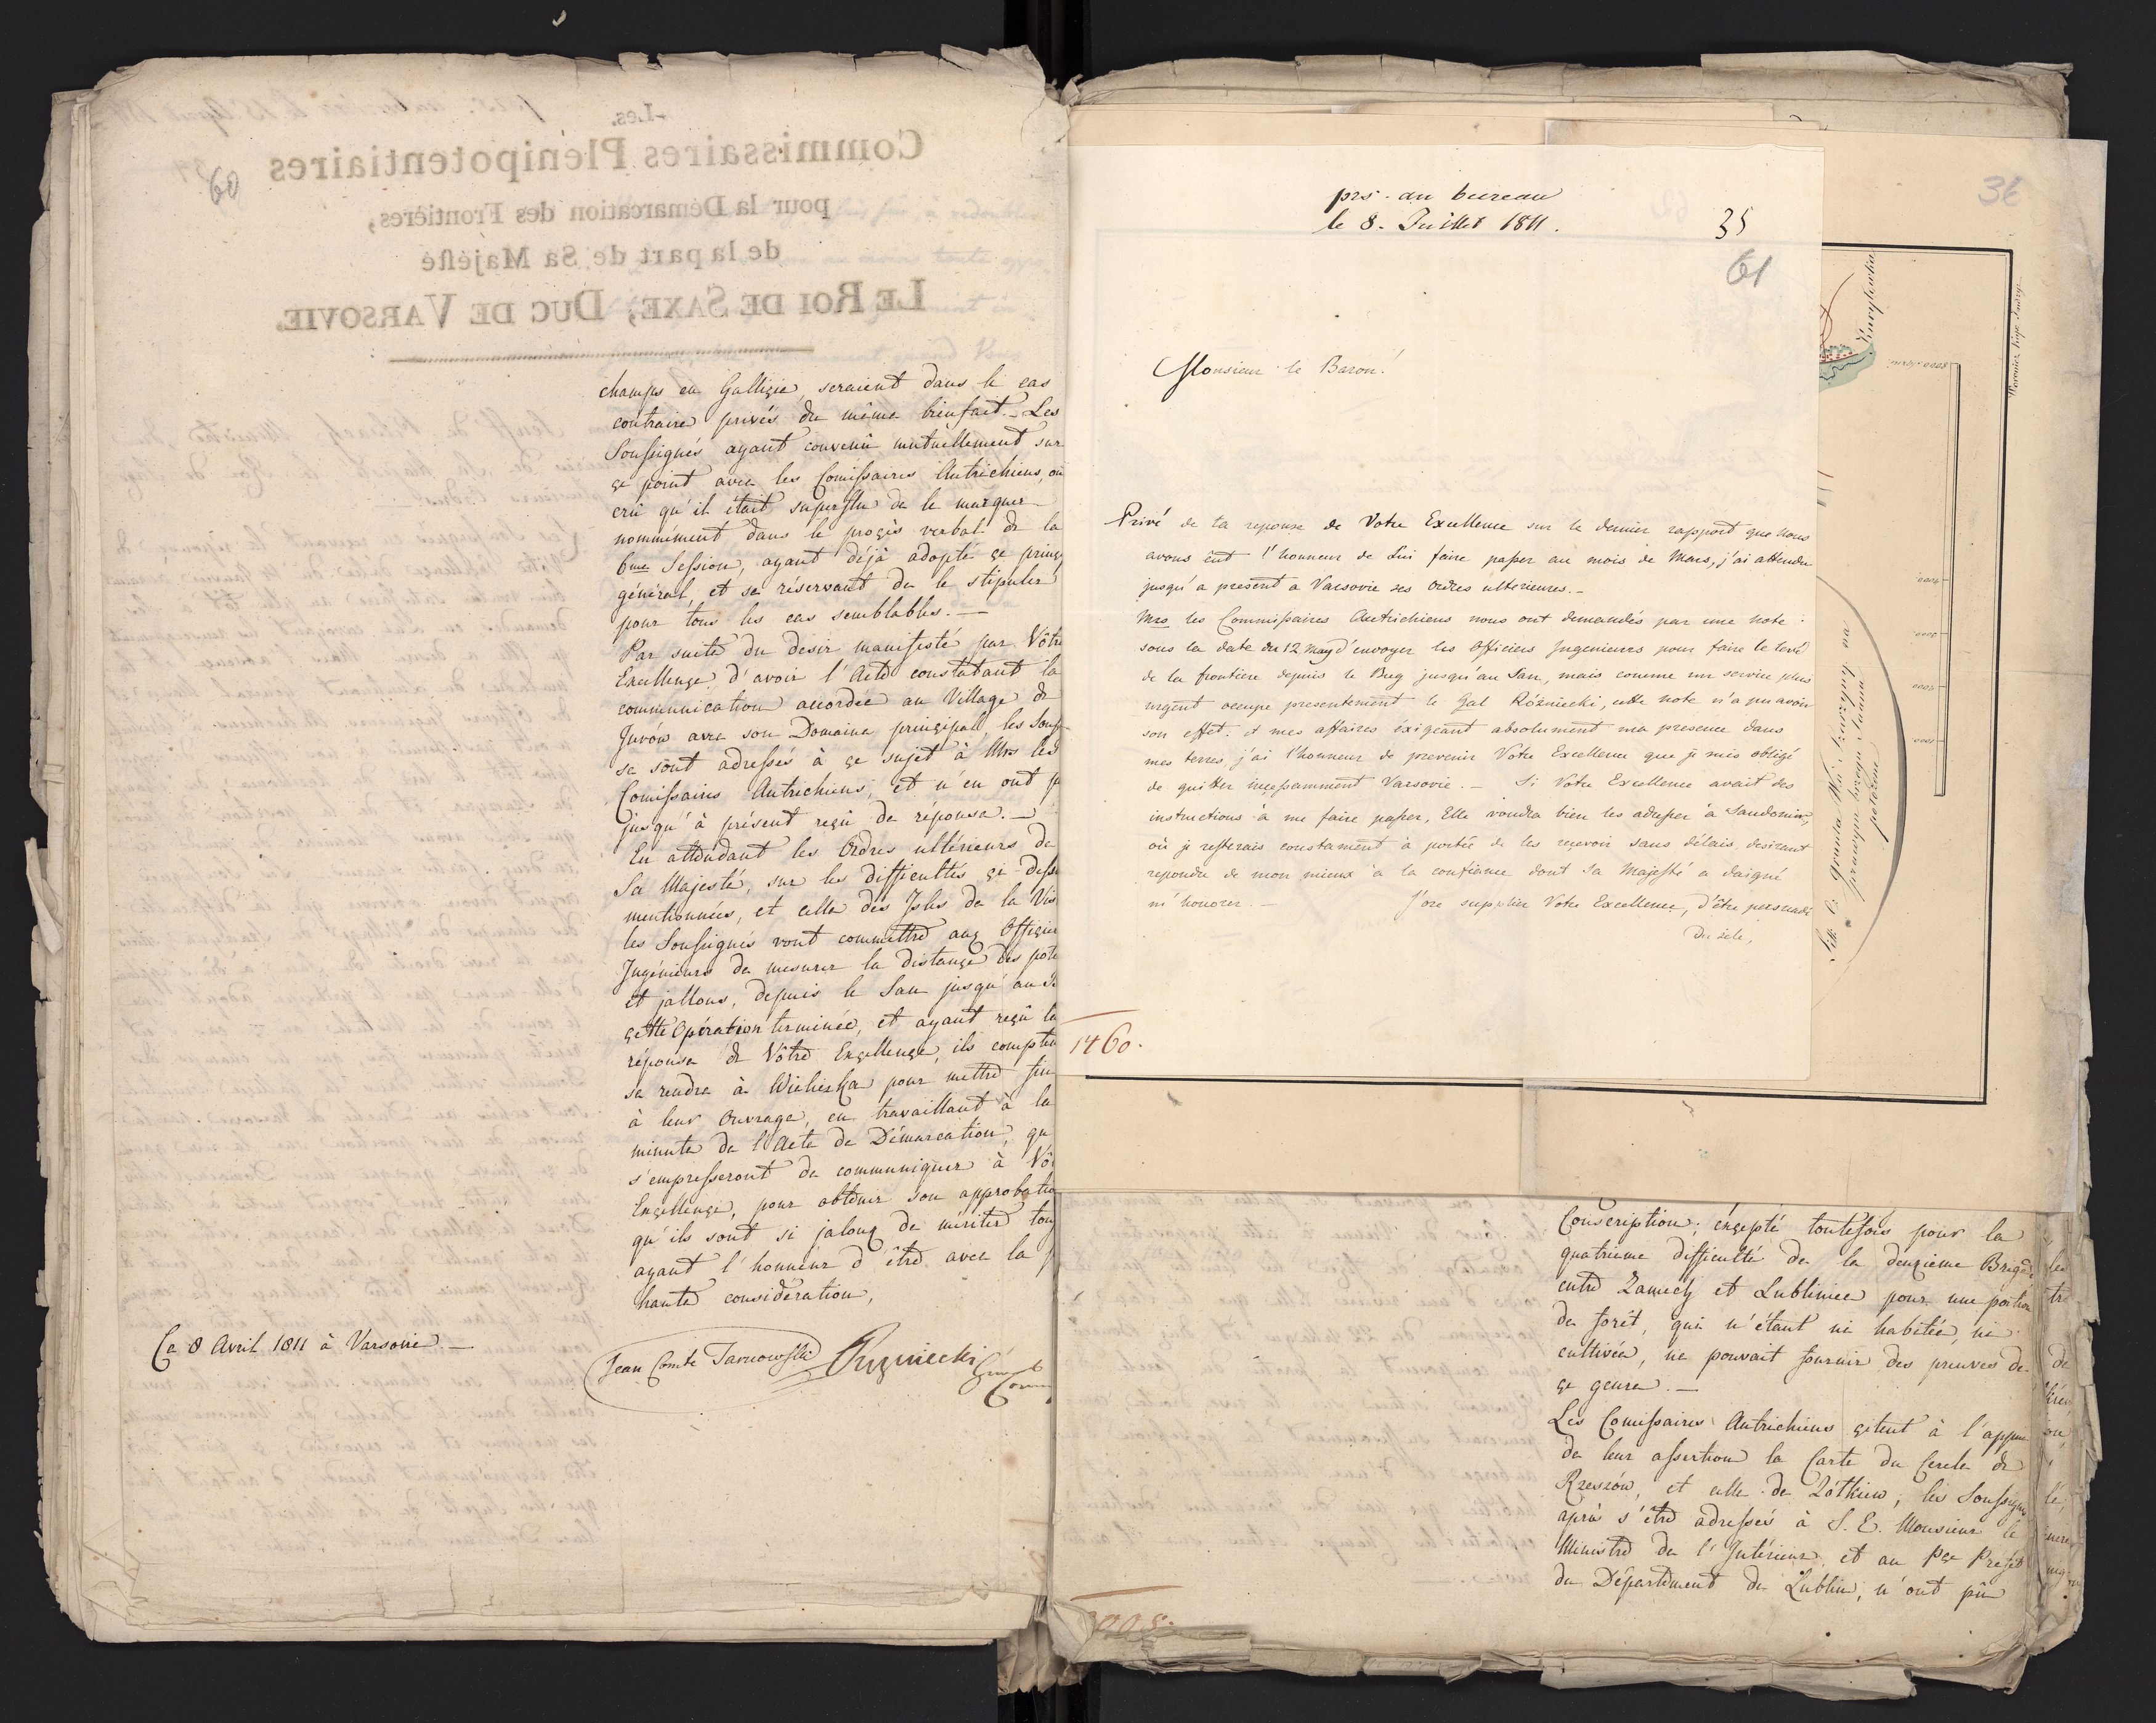 60
champs en Gallizie, seraient dans le cas
contraire privés du même bienfait. - Les
Soussignés ayant convenû mutuellement sur
ce point avec les Comissaires Autrichiens, on
crû qu'il était superflu de le marquer
nommément dans le procès verbal de la
6me Session, ayant déjà adopté ce princ
général, et se réservant de le stipuler
pour tous les cas semblables. —
Par suite du desir manifesté par Vôtre
Excellence d'avoir l'Acte constatant la
communication accordée au Village de
avec son Domaine principal, les Souss
se sont adressés à ce sujet à Mrs les
Comissaires Autrichiens, et n'en ont p
jusqu'à présent reçû de réponse. —
En attendant les Ordres ultérieurs de
Sa Majesté, sur les difficultés ci-dess
mentionnées, et celle des Isles de la Vis
les Soussignés vont commettre aux Officier
Ingénieurs de mesurer la distance des pote
et jallons, depuis le San jusqu'au
cette Opération terminée, et ayant reçû la
réponse de Vôtre Excellence, ils compten
se rendre à Wieliczka pour mettre fin
à leur Ouvrage, en travaillant à la
minute de l'Acte de Démarcation, qu
s'empresseront de communiquer à Vô
Excellence, pour obtenir son approbatio
qu'ils sont si jaloux de mériter
ayant l'honneur d'être avec la p
haute considération,
Ce 8 Avril 1811 à Varsovie. —
Jean Comte Tarnowski Rozniecki
prs. au bureau
le 8. Juillet 1811.
35
61
Monsieur le Baron!
Privé de la reponse de Votre Excellence sur le dernier rapport que nous
avons eut l'honneur de Lui faire passer au mois de Mars, j'ai attendu
jusqu'a present a Varsovie ses Ordres ulterieures. -
Mrs les Commissaires Autrichiens nous ont demandés par une note
sous la date du 12 May d'envoyer les Officiers Ingenieurs pour faire le levé
de la frontière depuis le Bug jusqu'au San, mais comme un service plus
urgent occupe presentement le Gal Rózniecki, cette note n'a pu avoir
son effet. et mes affaires éxigeant absolument ma presence dans
mes terres, j'ai l'honneur de prevenir Votre Excellence que je suis obligé
de quitter incessamment Varsovie. - Si Votre Excellence avait des
instructions à me faire passer, Elle voudra bien les adresser à Sandomir,
où je resterais constament à portée de les reçevoir sans délais, desirant
repondre de mon mieux à la confiance dont Sa Majesté a daigné
m'honorer. - J'ose supplier Votre Excellence, d'être persuadé
du zele,
1460.
36
Conscription; éxcepté toutefois pour la
quatrieme difficulté de la deuxieme Brigade
entre Zamech et Lubliniec pour une portion
de forêt, qui n'étant ni habitée, ni
cultivée, ne pouvait fournir des preuves de
ce genre. —
Les Comissaires Autrichiens citent à l'appui
de leur assertion la Carte du Cercle de
Rzeszów, et celle de Zółkiew; les Soussignés
après s'être adressés à S. E. Monsieur le
Ministre de l'Intérieur, et au Préfet
du Départment de Lublin, n'ont pû